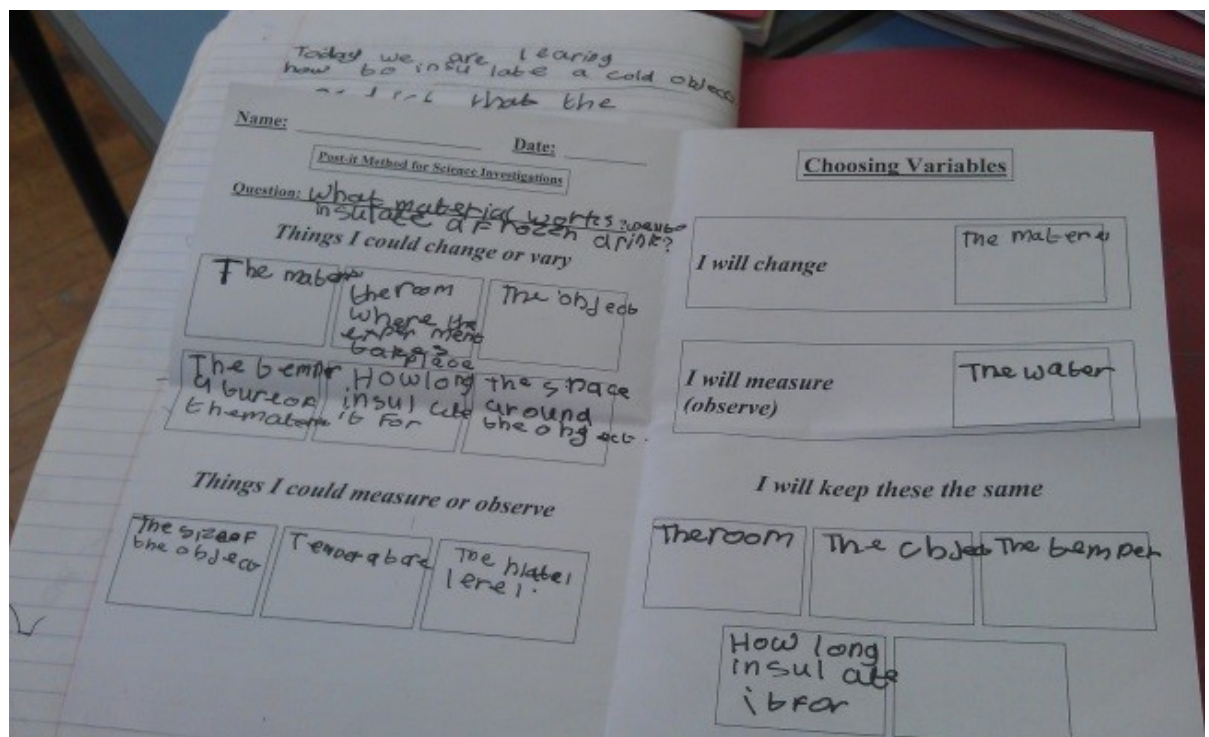 Today we are learing
how to insulate a cold object
that the
Name:
Date:
Post-it Method for Science Investigations
Question: What material works
insulate a frozen drink?
Things I could change or vary
The mater
the room
where the
experment
takes place
The object
The temper
ature of
the mater
How long
insulate
it for
the space
around
the ongect.
Things I could measure or observe
The size of
the object
Temperature
The
level.
Choosing Variables
I will change
The materi
I will measure
(observe)
The water
I will keep these the same
The room
The object
The temper
How long
insulate
it for